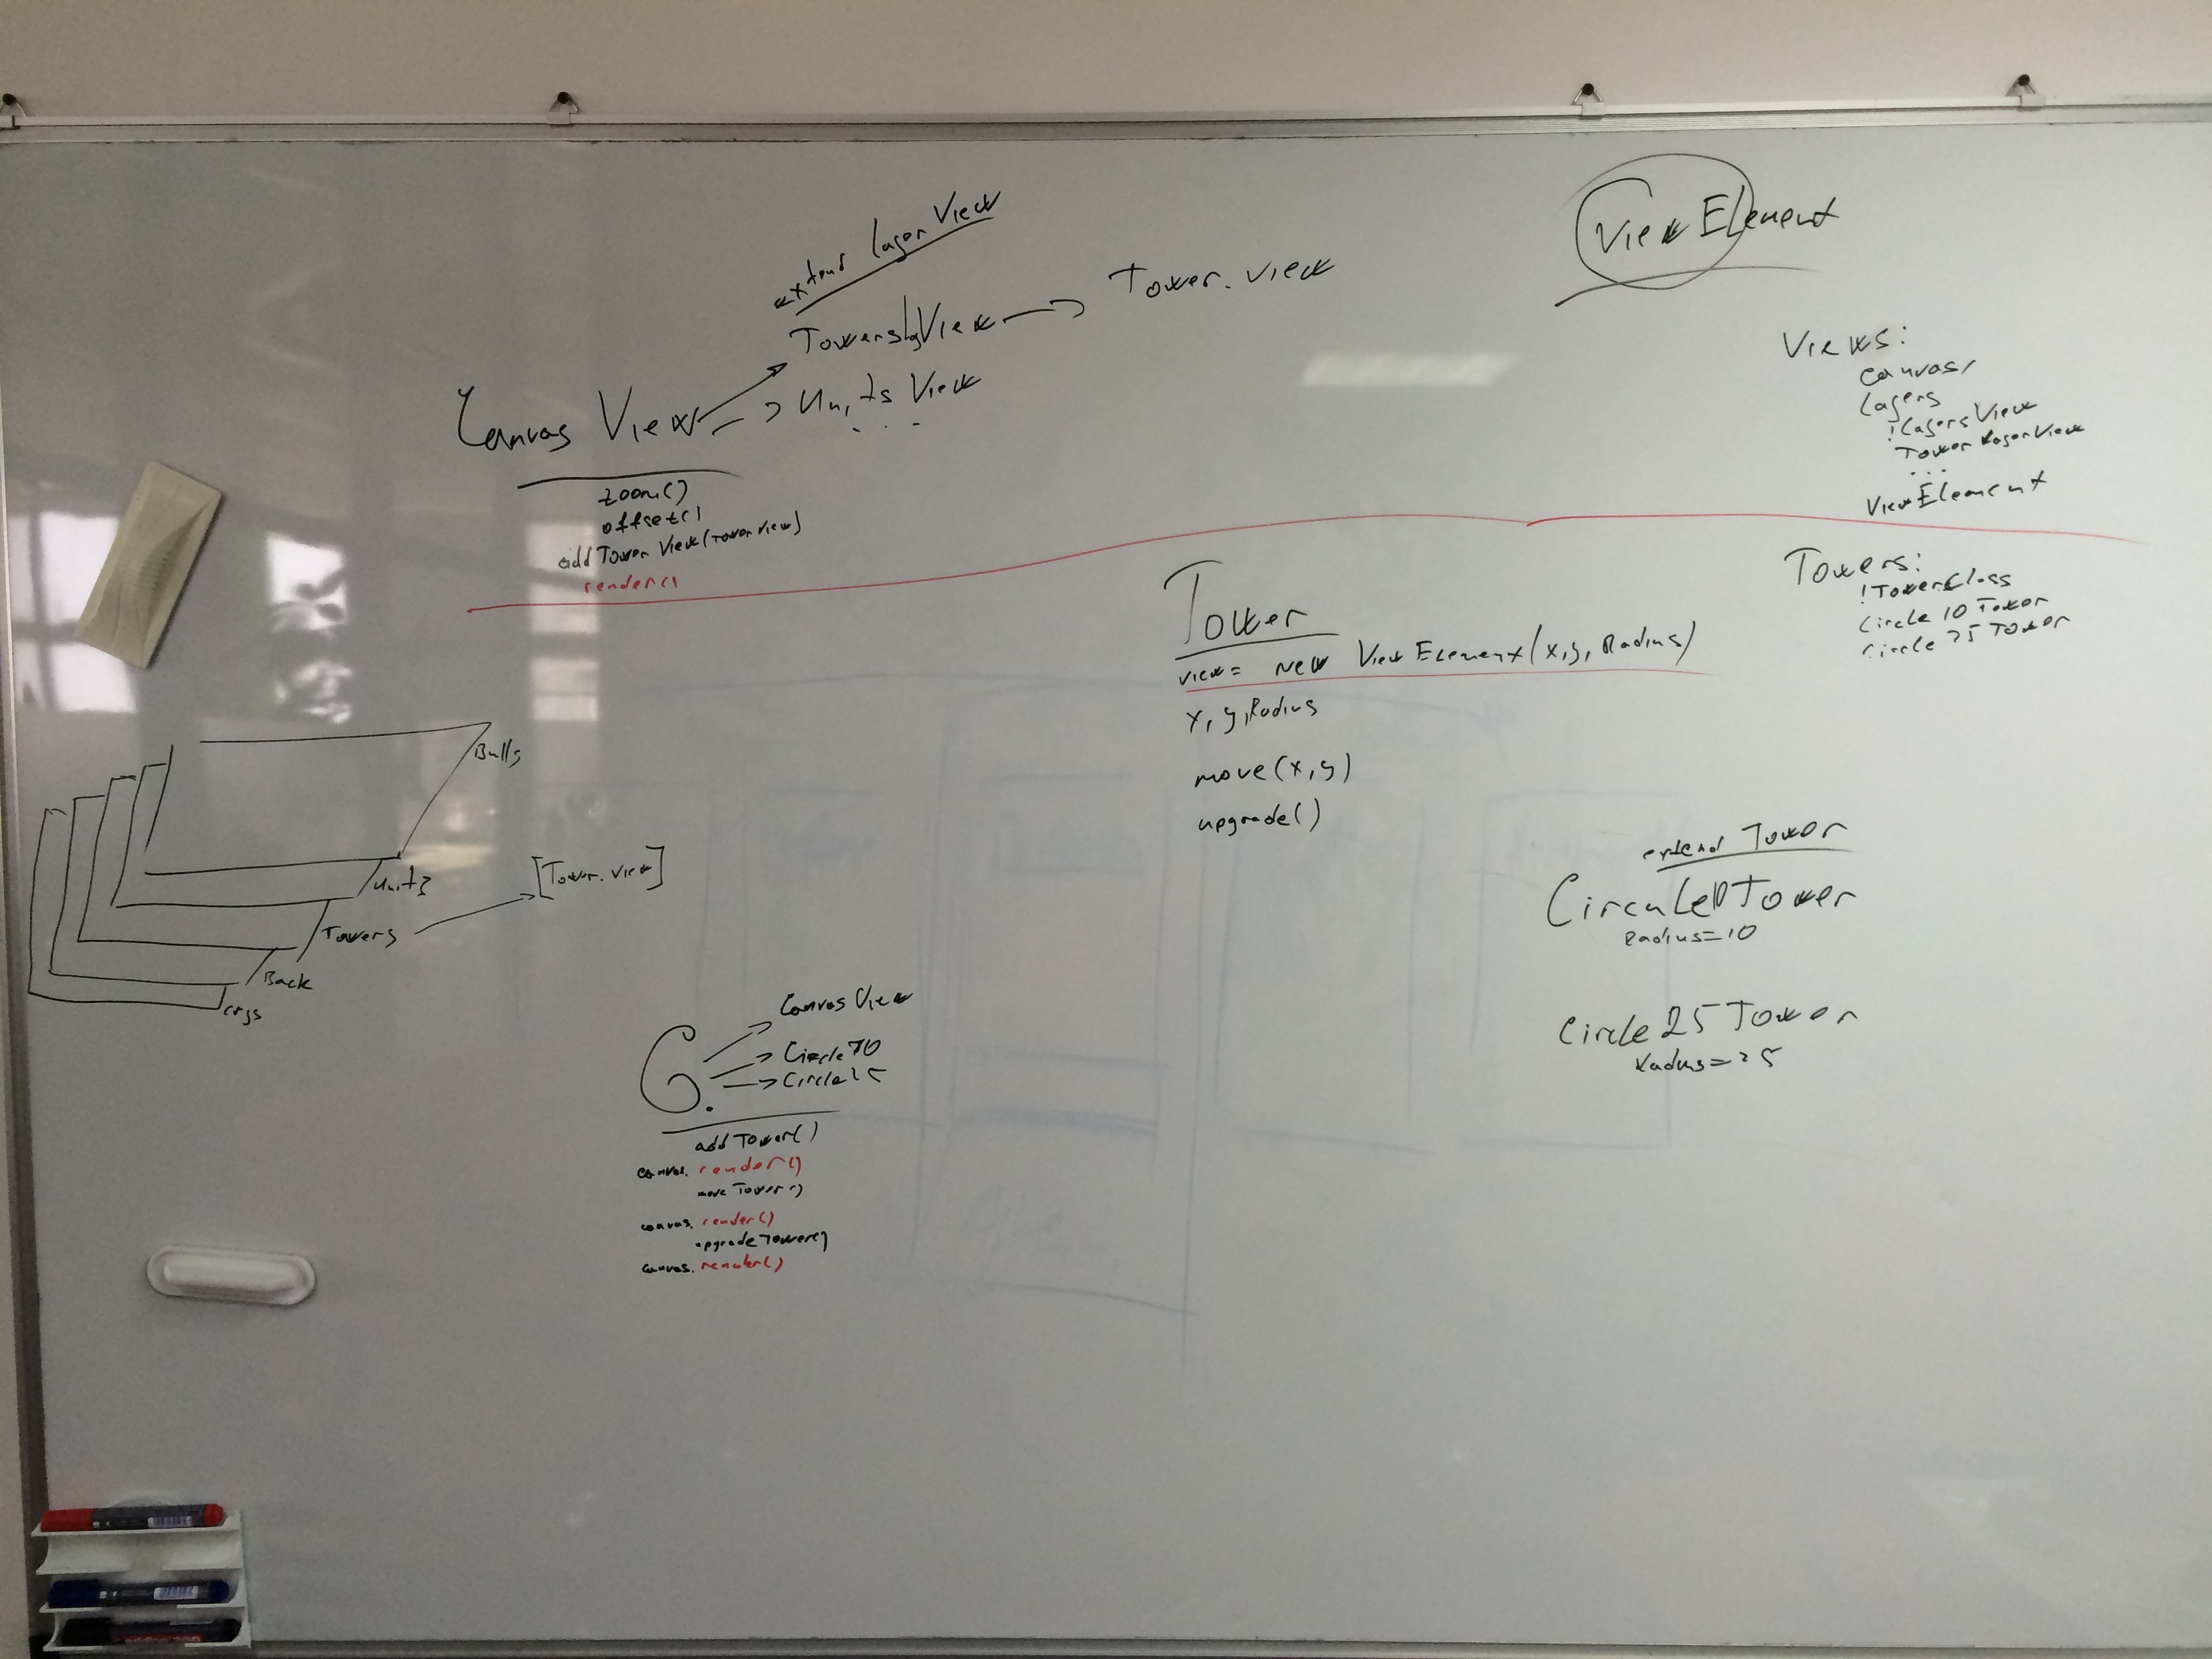 extend layer View
TowerslyView
Tower.view
Canvas View
Units View
...
zoom()
offset()
add Tower View(TowerView)
render()
View Element
Views:
canvas
layers
!LayersView
Tower LayerView
...
ViewElement
Towers:
!TowerClass
Circle 10 Tower
Circle 25 Tower
Tower
view= new View Element(x,y, Radius)
x, y, Radius
move(x,y)
upgrade()
extend Tower
Radius=10
Circle 25 Tower
Radius=25
Bulls
Units
Towers
[Tower.view]
Back
G.
Canvas View
Circle 10
Circle 25
add Tower()
canvas. render()
move Tower()
canvas. render()
upgrade Tower()
canvas. render()